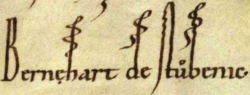 Bernęhart de Stůbenic.